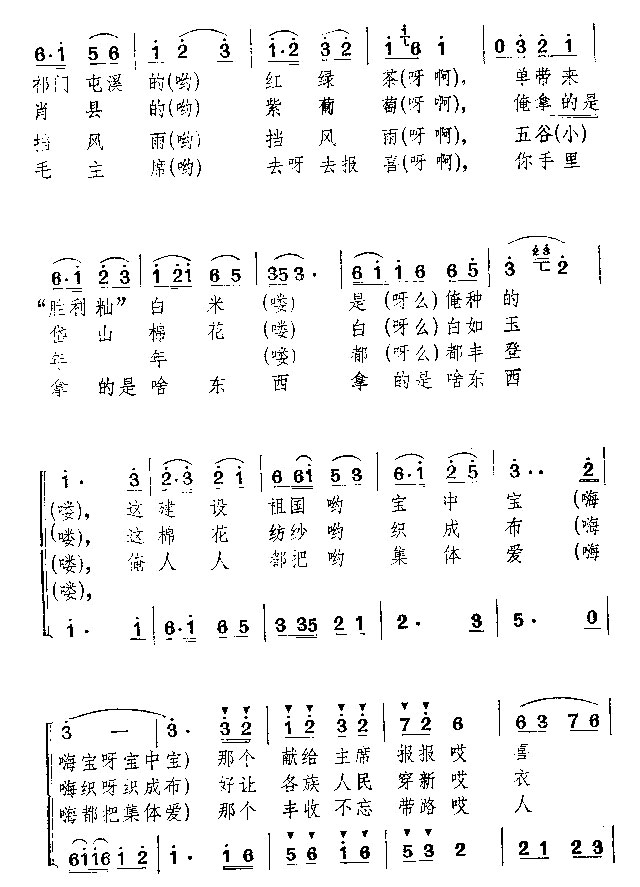 6·i 5 6 | i 2 3 | i·2 3 2 | i 6 i | 0 3 2 i |
祁门 屯溪 的(哟) 红 绿 茶(呀 啊), 单带来
肖 县 的(哟) 紫 葡 萄(呀 啊), 俺拿的是
挡 风 雨(哟) 挡 风 雨(呀 啊), 五谷(小)
毛 主 席(哟) 去呀 去报 喜(呀 啊), 你手里
6·i 2 3 | i 2i 6 5 | 35 3 · | 6 i i 6 6 5 | 3 2 |
“胜利籼” 白 米 (喽) 是 (呀么) 俺种 的
岱 山 棉 花 (喽) 白 (呀么) 白如 玉
年 年 (喽) 都 (呀么) 都丰 登
拿 的是 啥 东 西 拿 的是 啥东 西
i · 3 | 2·3 2 i | 6 6i 5 3 | 6·i 2 5 | 3 ·· 2 |
(喽), 这 建 设 祖国 哟 宝 中 宝 (嗨
(喽), 这 棉 花 纺纱 哟 织 成 布 (嗨
(喽), 俺 人 人 都把 哟 集 体 爱 (嗨
(喽),
i · i | 6·i 6 5 | 3 35 2 1 | 2 · 3 | 5 · 0 |
3 — | 3 · 3 2 | i 2 3 2 | 7 2 6 | 6 3 7 6 |
嗨宝呀宝中宝) 那个 献给 主席 报报 哎 喜
嗨织呀织成布) 好让 各族 人民 穿新 哎 衣
嗨都把集体爱) 那个 丰收 不忘 带路 哎 人
6i i6 i 2 | i · i 6 | 5 6 i 6 | 5 3 2 | 2 1 2 3 |